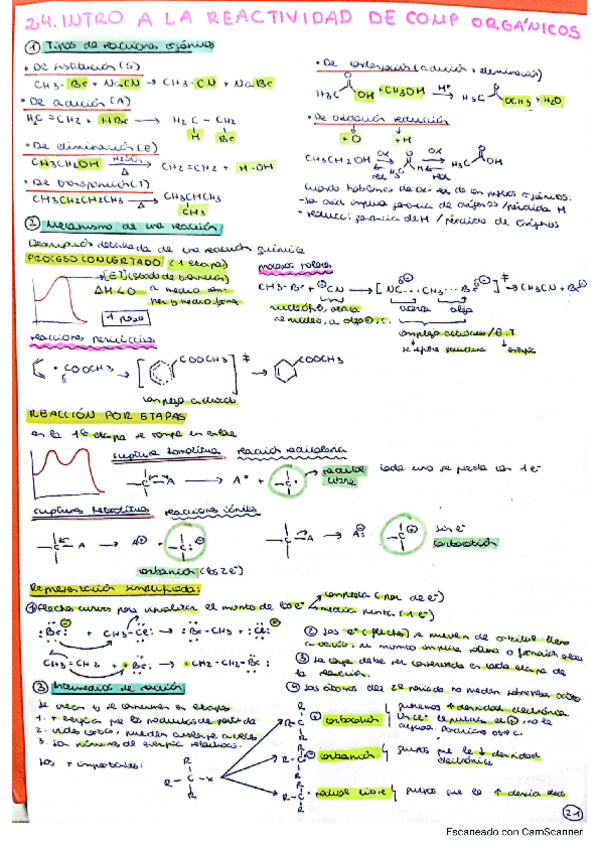 2.4. INTRO A LA REACTIVIDAD DE COMP ORGÁNICOS
① Tipos de reacciones orgánicas
• De sustitución (S)
CH3-Br + NaCN → CH3-CN + NaBr
• De adición (A)
H2C=CH2 + HBr → H2C-CH2
H Br
• De eliminación (E)
CH3CH2OH H2SO4 Δ CH2=CH2 + H-OH
• De transposición (T)
CH3CH2CH2CH3 Δ CH3CHCH3
CH3
• De condensación (adición + eliminación)
H3C OH + CH3OH H+ H3C OCH3 + H2O
• De oxidación reducción
+O +H
CH3CH2OH ox red H3C H ox red H3C OH
Cuando hablamos de ox-red de compuestos orgánicos:
ganancia de oxígenos/pérdida H
- reducc: ganancia de H / pérdida de oxígenos
② Mecanismo de una reacción
Descripción detallada de una reacción química
PROCESO CONCERTADO (1 etapa)
(E.T) (estado de transición)
ΔH<0
1 paso
procesos polares
CH3-Br + ⊖CN → [NC...CH3...Br⊖]‡ → CH3CN + Br⊖
complejo activado / E.T
reacciones pericíclicas
+ COOCH3 → [ COOCH3 ]‡ → COOCH3
complejo activado
REACCIÓN POR ETAPAS
en la 1ª etapa se rompe un enlace
ruptura homolítica reacción radicalaria
-C-A → A• + -C•
radical libre
cada uno se queda con 1 e-
ruptura heterolítica reacciones iónicas
-C-A → A⊕ + -C:⊖
carbanión (los 2 e-)
-C-A → A:⊖ -C⊕
sin e-
carbocatión
Representación simplificada:
① flechas curvas para visualizar el movimiento de los e-
completa (par de e-)
media punta (1 e-)
:Br:⊖ + CH3-Cl: → :Br-CH3 + :Cl:⊖
CH3-CH2 + •Br: → •CH2-CH2-Br:
② Los e- (flechas) se mueven de orbital lleno
a vacío, su movimiento implica rotura o formación
③ La carga debe ser conservada en cada etapa de
la reacción.
④ Los átomos del 2º periodo no pueden sobrepasar octeto
③ Intermedios de reacción
Se crean y se consumen en etapas
1. + energía que los productos de partida
2. vida corta, pueden
3. Son mínimos de energía relativos.
Los + importantes:
R R-C-X R
R-C⊕ carbocatión
↑ densidad electrónica.
R-C:⊖ carbanión
grupos que ↓ densidad
electrónica
R-C• radical libre
grupos que ↑ densidad
21
Escaneado con CamScanner